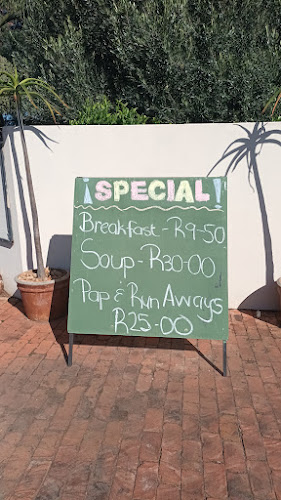 ¡SPECIAL!
Breakfast - R9-50
Soup - R30-00
Pap & Run Aways
R25-00